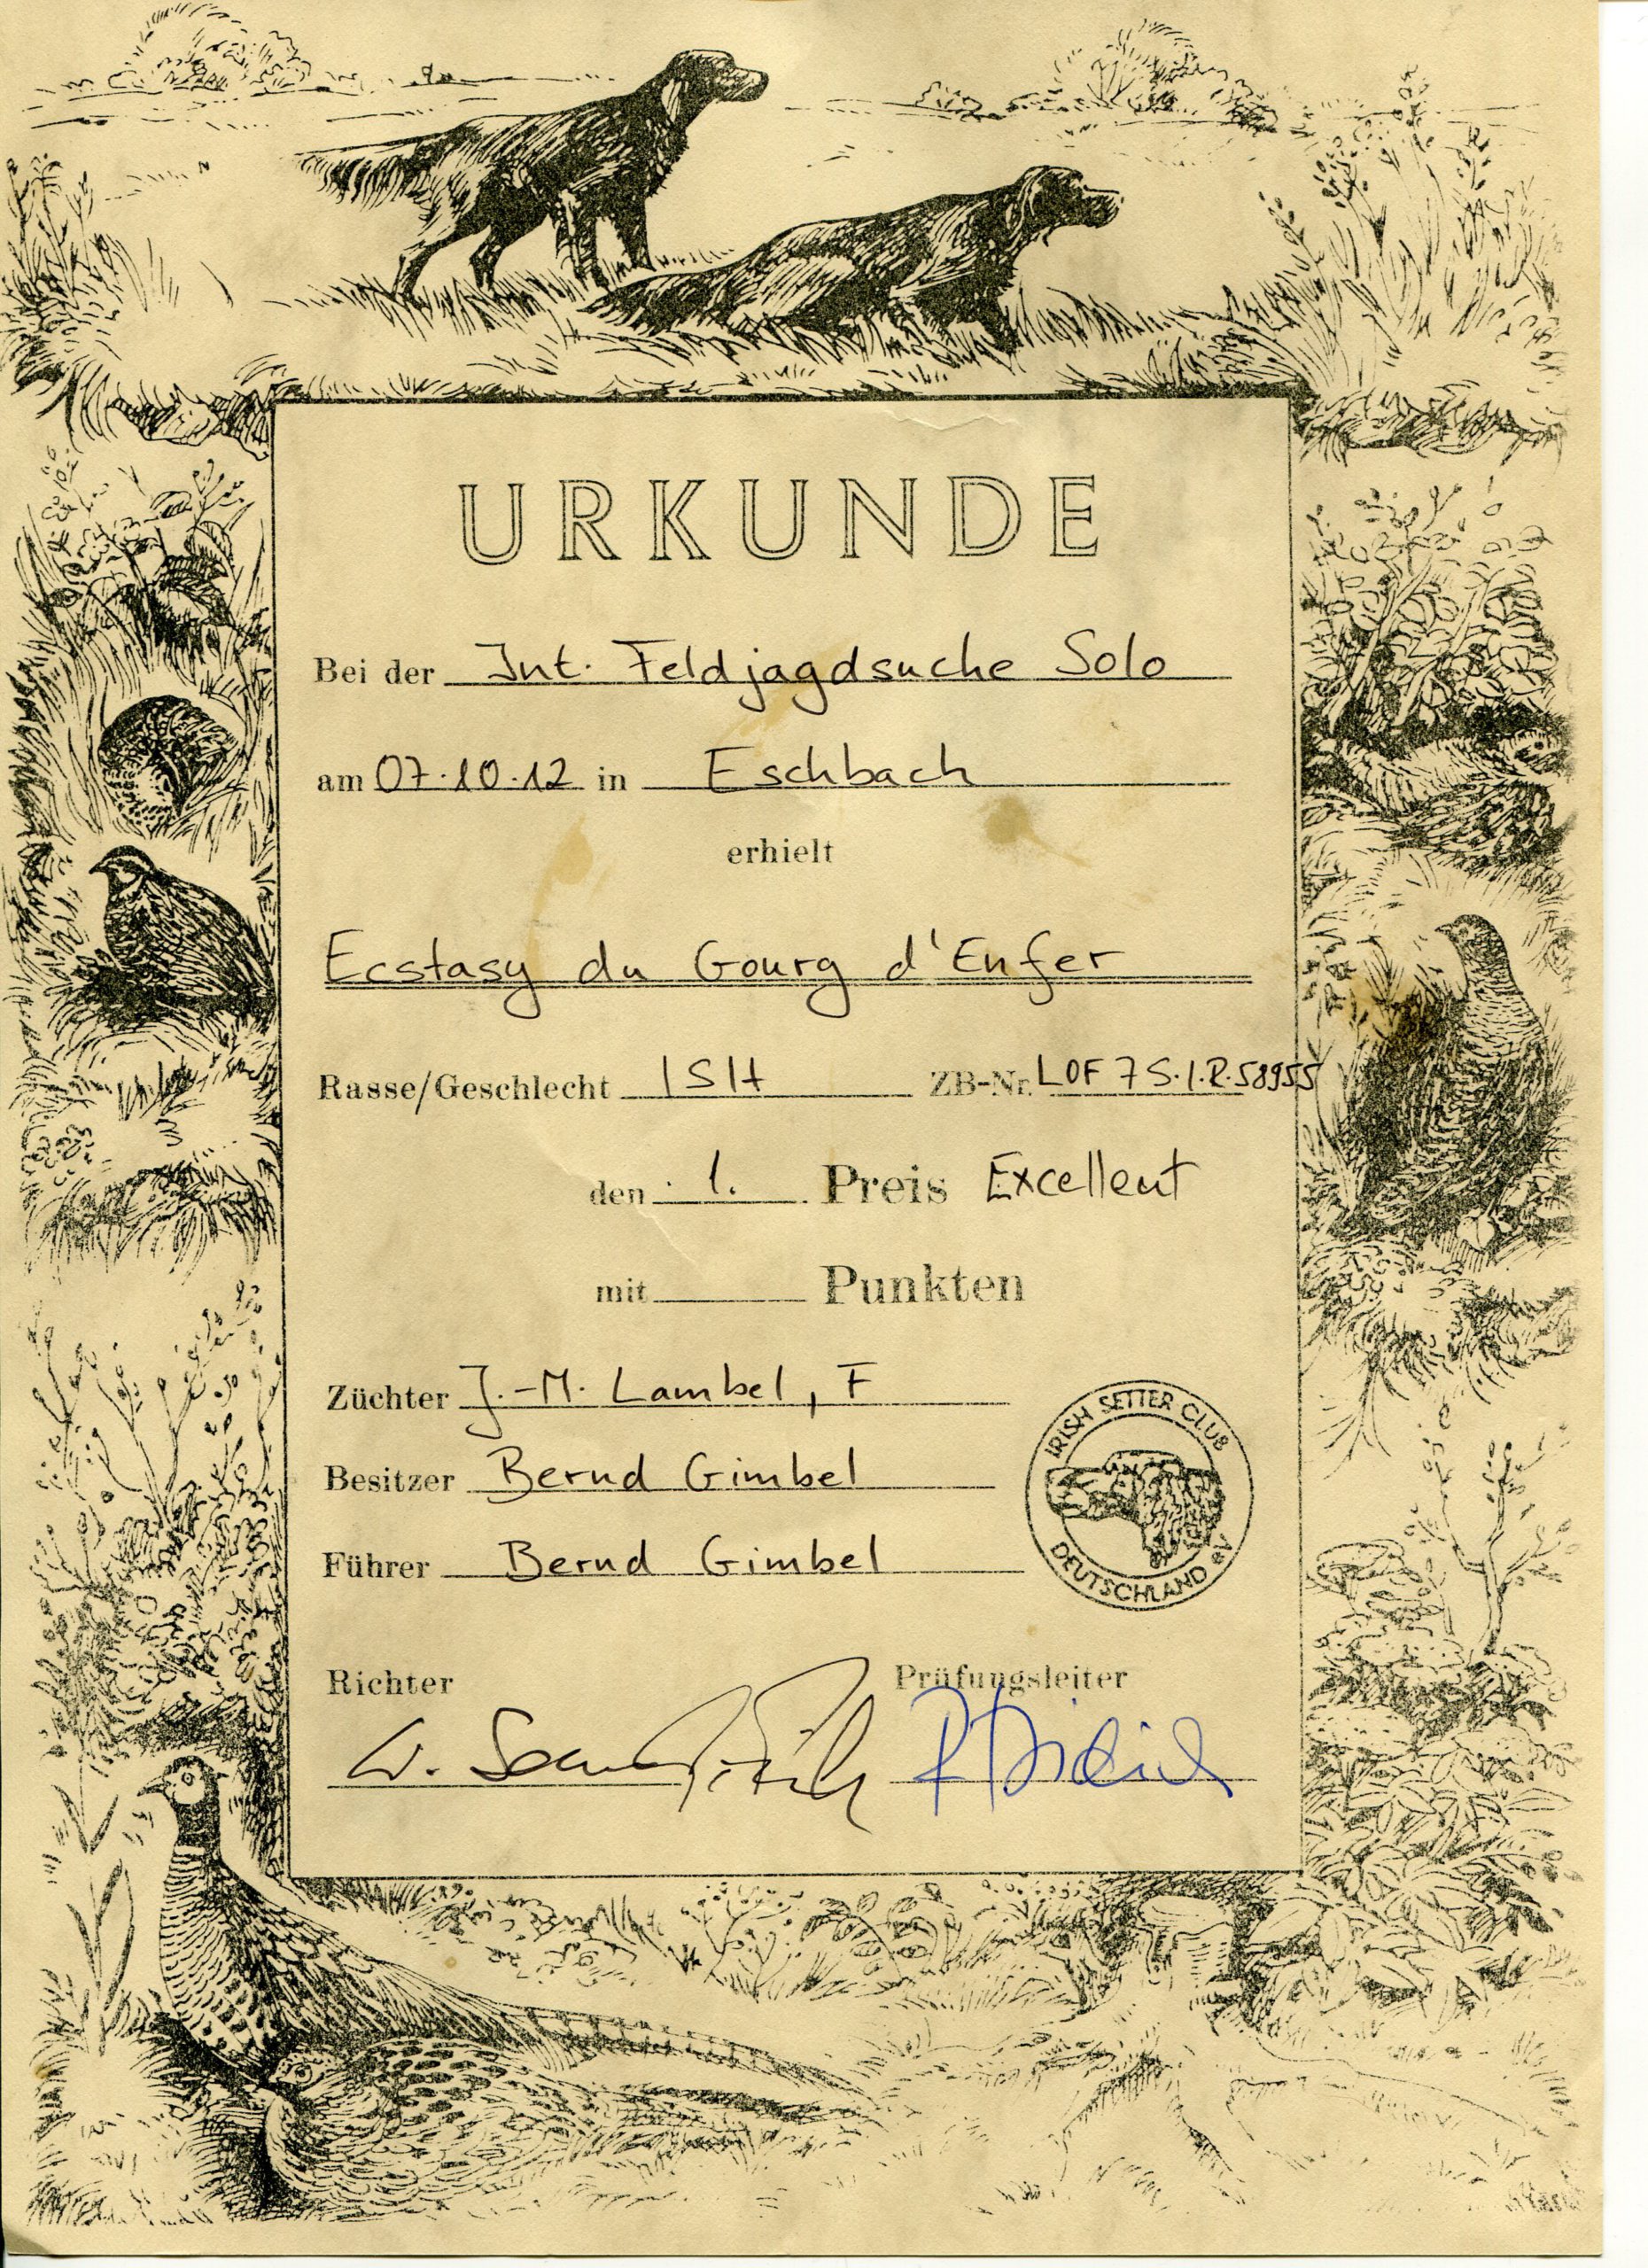 URKUNDE
Bei der Int. Feldjagdsuche Solo
am 07.10.12 in Eschbach
erhielt
Ecstasy du Gourg d'Enfer
Rasse/Geschlecht ISH ZB-Nr. LOF 7 S.I.R.58955
den 1. Preis Excellent
mit Punkten
Züchter J.-M. Lambel, F
Besitzer Bernd Gimbel
IRISH SETTER CLUB
DEUTSCHLAND eV
Führer Bernd Gimbel
Richter Prüfungsleiter
W.